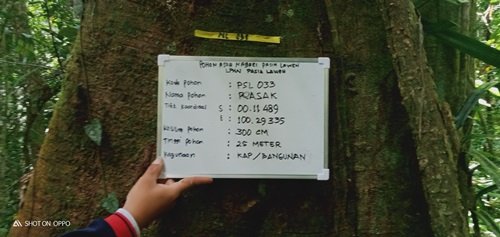 PSL 033
POHON ASUH NAGARI PASIA LAWEH
LPHN PASIA LAWEH
Kode Pohon : PSL 033
Nama Pohon : RASAK
Titik Koordinat S : 00.11 489
E : 100.29 335
Keliling Pohon : 300 CM
Tinggi Pohon : 25 METER
Kegunaan : KAP / BANGUNAN
SHOT ON OPPO